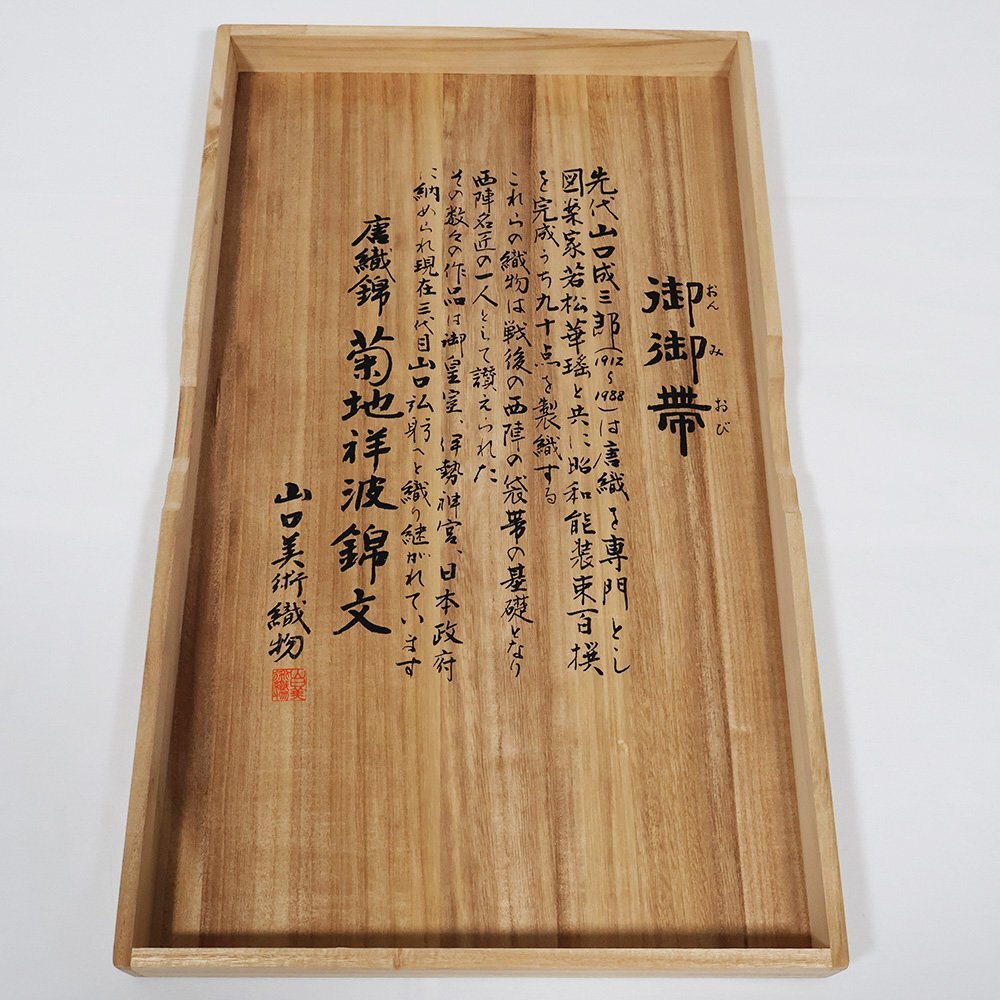 御御帯
おん み おび
先代山口成三郎(1912〜1988)は唐織を専門とし
図案家若松華瑶と共に昭和能装束百撰
を完成うち九十点を製織する
これらの織物は戦後の西陣の袋帯の基礎となり
西陣名匠の一人として讃えられた
その数々の作品は御皇室、伊勢神宮、日本政府
に納められ現在三代目山口弘躬へと織り継がれています
唐織錦 菊地祥波錦文
山口美術織物